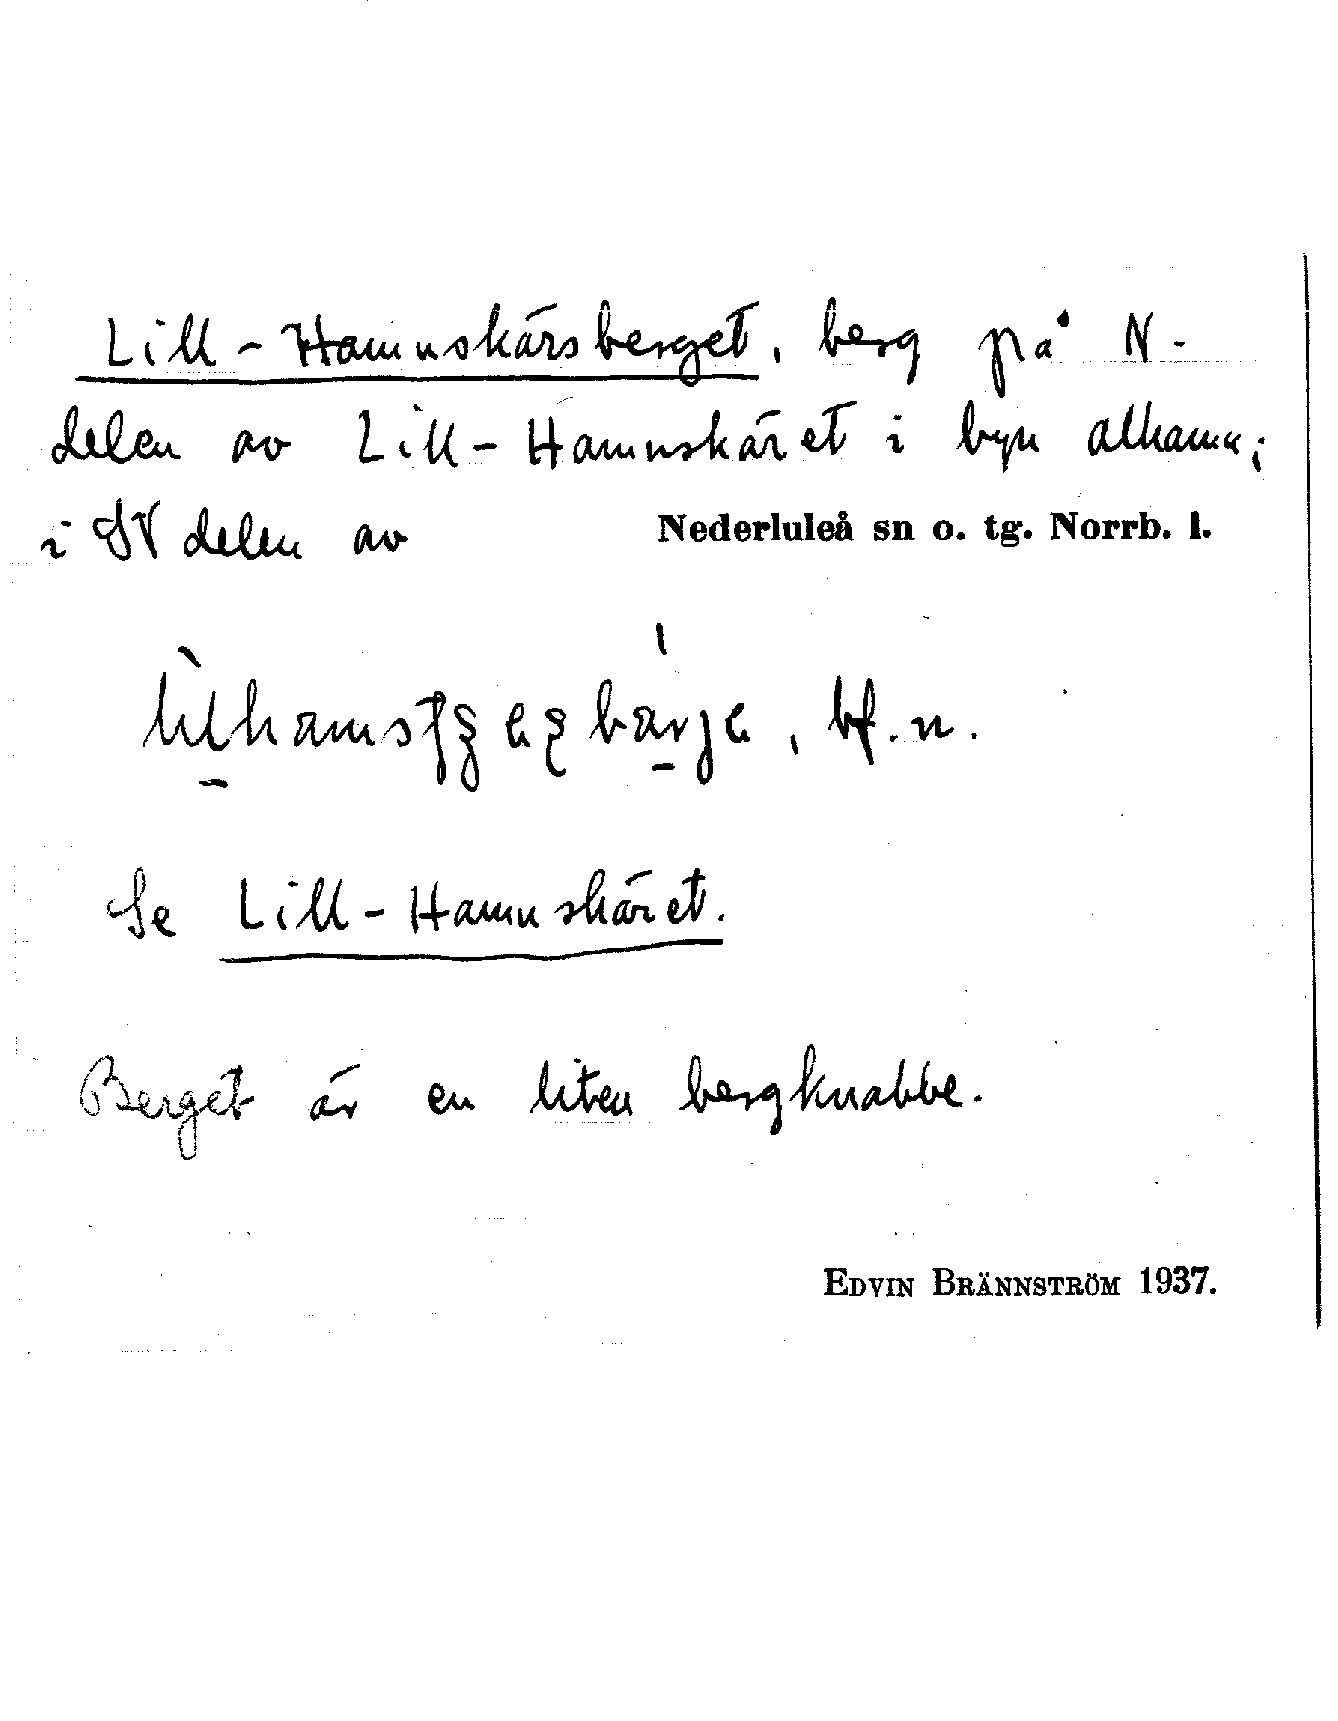 Lill-Hamnskärsberget, berg på N-
delen av Lill-Hamnskäret i byn Alhamn;
i SV delen av Nederluleå sn o. tg. Norrb. l.
bf. n.
Se Lill-Hamnskäret.
Berget är en liten bergknabbe.
EDVIN BRÄNNSTRÖM 1937.